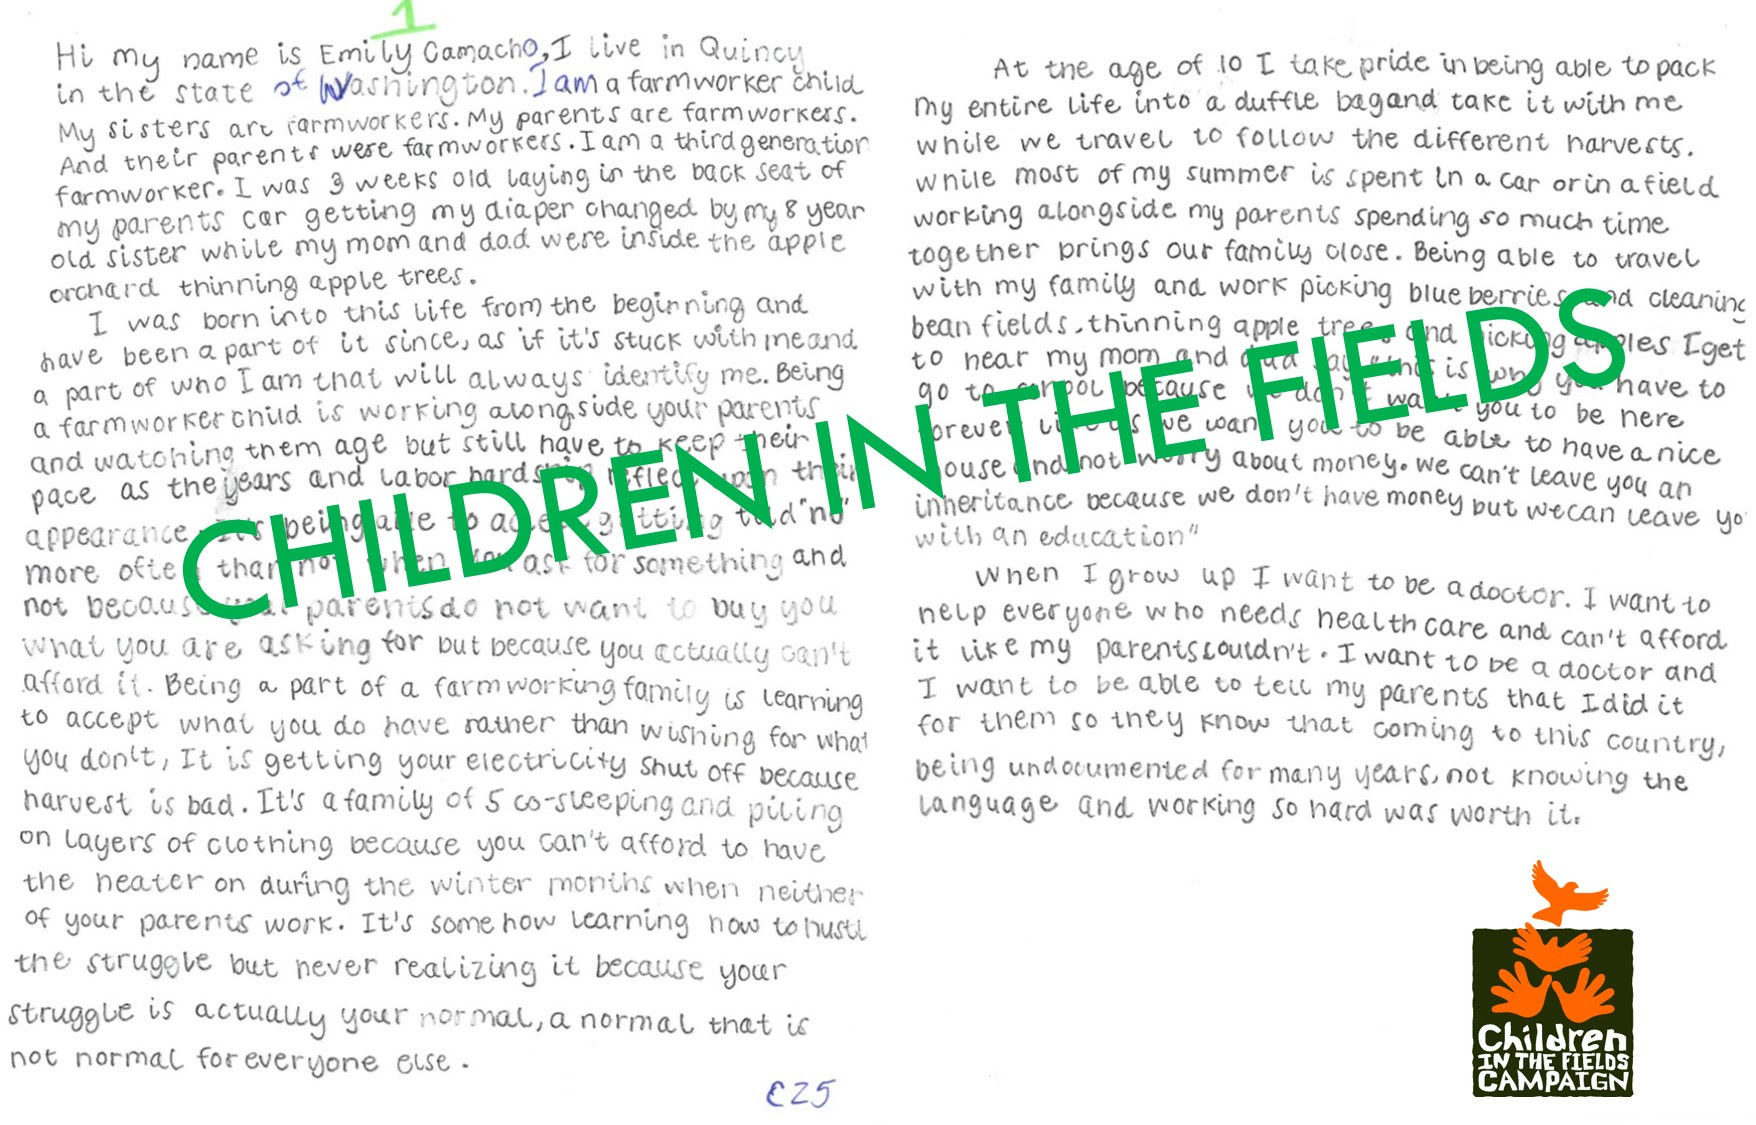 1
Hi my name is Emily Camacho, I live in Quincy
in the state of Washington. I am a farmworker child
My sisters are farmworkers. My parents are farmworkers.
And their parents were farmworkers. I am a third generation
farmworker. I was 3 weeks old laying in the back seat of
my parents car getting my diaper changed by my 8 year
old sister while my mom and dad were inside the apple
orchard thinning apple trees.
I was born into this life from the beginning and
have been a part of it since, as if it's stuck with me and
a part of who I am that will always identify me. Being
a farmworker child is working alongside your parents
and watching them age but still have to keep their
pace as the years and labor hardship reflect upon their
appearance. It's being able to accept getting told "no"
more often than not when you ask for something and
not because your parents do not want to buy you
what you are asking for but because you actually can't
afford it. Being a part of a farmworking family is learning
to accept what you do have rather than wishing for what
you don't, It is getting your electricity shut off because
harvest is bad. It's a family of 5 co-sleeping and piling
on layers of clothing because you can't afford to have
the heater on during the winter months when neither
of your parents work. It's somehow learning how to hustl
the struggle but never realizing it because your
struggle is actually your normal, a normal that is
not normal for everyone else.
E25
At the age of 10 I take pride in being able to pack
my entire life into a duffle bag and take it with me
while we travel to follow the different harvests.
While most of my summer is spent in a car or in a field
working alongside my parents spending so much time
together brings our family close. Being able to travel
with my family and work picking blueberries and cleaning
bean fields, thinning apple trees and picking apples I get
to hear my mom and dad say "this is why you have to
go to school because we don't want you to be here
forever like us we want you to be able to have a nice
house and not worry about money. We can't leave you an
inheritance because we don't have money but we can leave yo
with an education"
When I grow up I want to be a doctor. I want to
help everyone who needs health care and can't afford
it like my parents couldn't. I want to be a doctor and
I want to be able to tell my parents that I did it
for them so they know that coming to this country,
being undocumented for many years, not knowing the
language and working so hard was worth it.
CHILDREN IN THE FIELDS
Children
IN THE FIELDS
CAMPAIGN